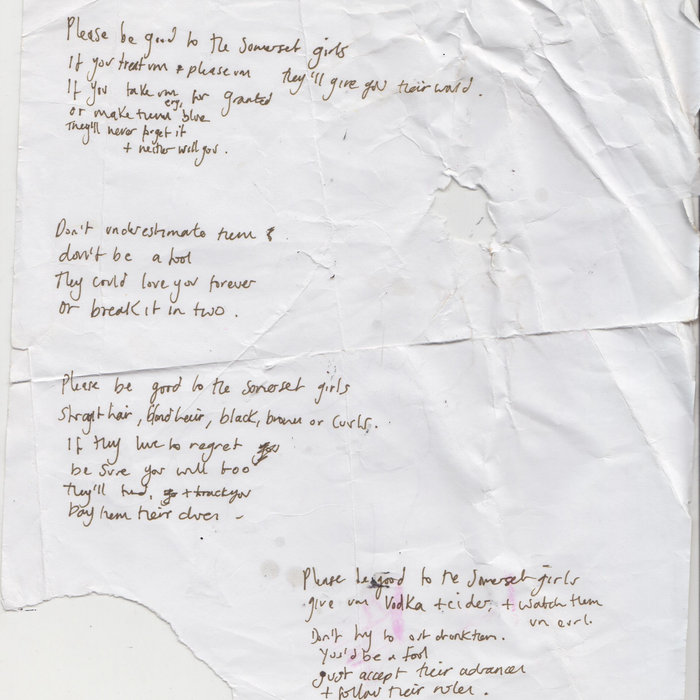 Please be good to the Somerset girls
If you treat um + please um they'll give you their world.
If you take um for granted
or make their eyes blue
They'll never forget it
+ neither will you.
Don't underestimate them
don't be a fool
They could love you forever
Or break it in two.
Please be good to the Somerset girls
Straght hair, blond hair, black, brown or curls.
If they live to regret
be sure you will too
they'll + track you
Please be good to the Somerset girls
give um Vodka + cider, + watch them
un curl.
Don't try to out drink them.
You'd be a fool
Just accept their advances
+ follow their rules.